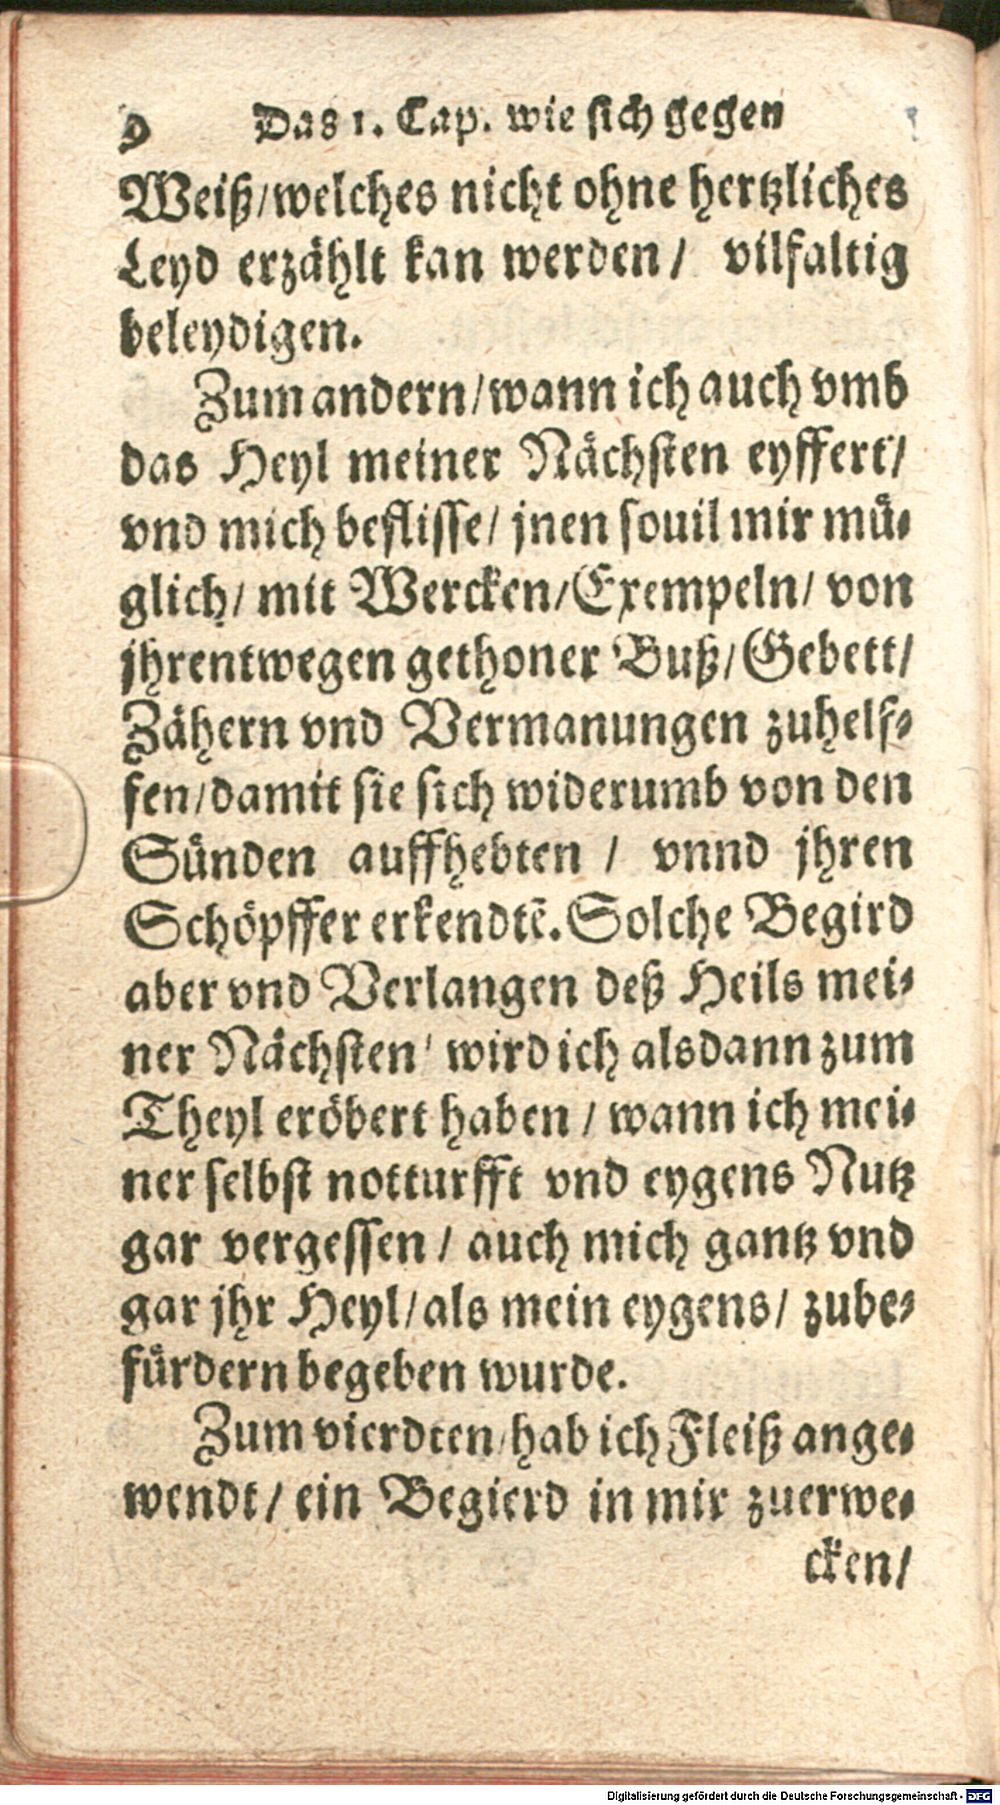 Das 1. Cap. wie sich gegen
Weiß/welches nicht ohne hertzliches
Leyd erzählt kan werden/ vilfaltig
beleydigen.
Zum andern/wann ich auch vmb
das Heyl meiner Nächsten eyffert/
vnd mich beflisse/ jnen souil mir mü-
glich/ mit Wercken/Exempeln/ von
jhrentwegen gethoner Buß/Gebett/
Zähern vnd Vermanungen zuhelf-
fen/damit sie sich widerumb von den
Sünden auffhebten / vnnd jhren
Schöpffer erkendtē. Solche Begird
aber vnd Verlangen deß Heils mei-
ner Nächsten/ wird ich alsdann zum
Theyl eröbert haben / wann ich mei-
ner selbst notturfft vnd eygens Nutz
gar vergessen / auch mich gantz vnd
gar jhr Heyl/als mein eygens/ zube-
fürdern begeben wurde.
Zum vierdten/hab ich Fleiß ange-
wendt/ ein Begierd in mir zuerwe-
cken/
Digitalisierung gefördert durch die Deutsche Forschungsgemeinschaft - DFG